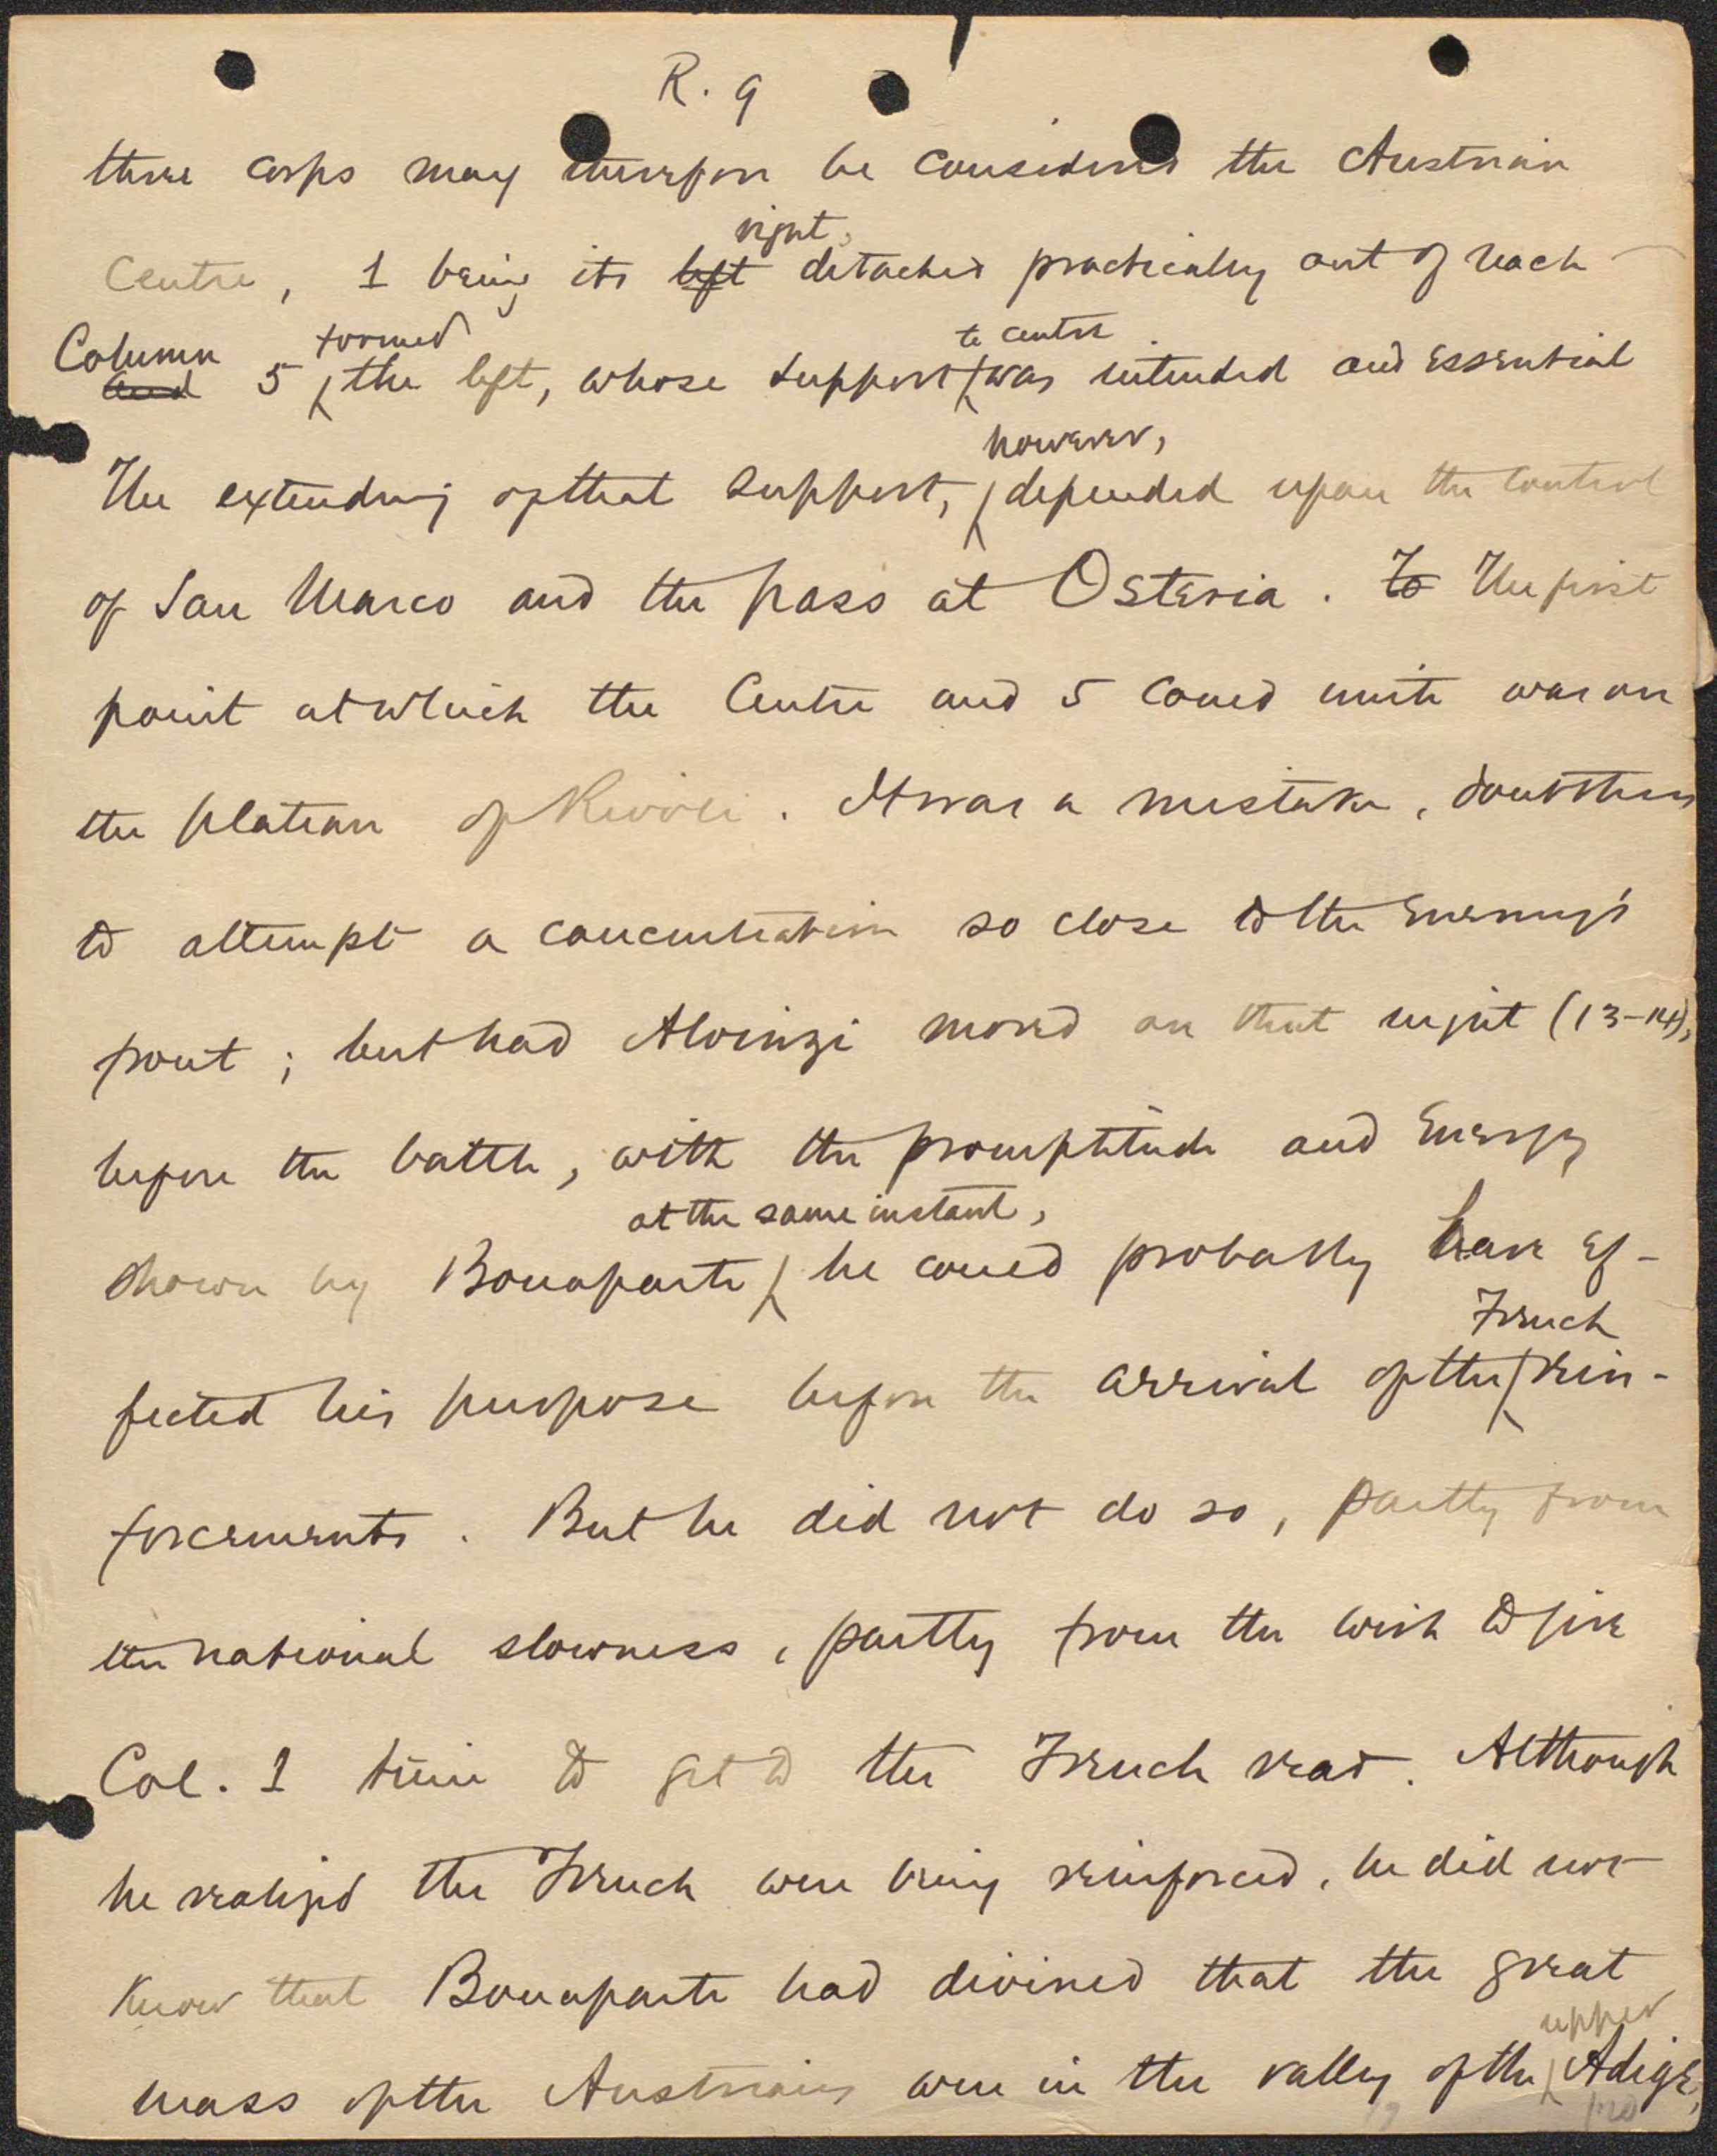 R. 9
three corps may therefore be considered the Austrian
right,
Centre, 1 being its left detached practically out of reach
Column formed to centre
and 5 the left, whose support was intended and essential
however,
The extending of that support, depended upon the control
of San Marco and the pass at Osteria. To The first
point at which the Centre and 5 could unite was on
the plateau of Rivoli. It was a mistake, doubtless
to attempt a concentration so close to the enemy's
front; but had Alvinzi moved on that night (13-14),
before the battle, with the promptitude and energy
at the same instant,
shown by Bonaparte he could probably have ef-
French
fected his purpose before the arrival of the rein-
forcements. But he did not do so, partly from
the national slowness, partly from the wish to give
Col. 1 time to get to the French rear. Although
he realized the French were being reinforced, he did not
know that Bonaparte had divined that the great
upper
mass of the Austrians were in the valley of the Adige,